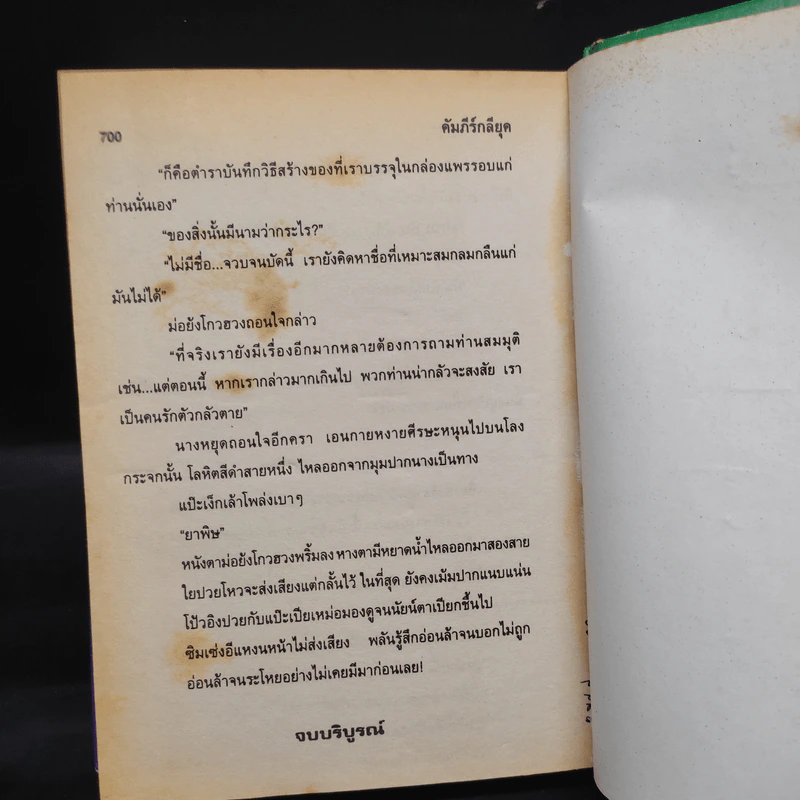 700
คัมภีร์กลียุค
"ก็คือตำราบันทึกวิธีสร้างของที่เราบรรจุในกล่องแพรรอบแก่
ท่านนั่นเอง"
"ของสิ่งนั้นมีนามว่ากระไร?"
"ไม่มีชื่อ...จวบจนบัดนี้ เรายังคิดหาชื่อที่เหมาะสมกลมกลืนแก่
มันไม่ได้"
ม่อยังโกวฮวงถอนใจกล่าว
"ที่จริงเรายังมีเรื่องอีกมากหลายต้องการถามท่านสมมุติ
เช่น...แต่ตอนนี้ หากเรากล่าวมากเกินไป พวกท่านน่ากลัวจะสงสัย เรา
เป็นคนรักตัวกลัวตาย"
นางหยุดถอนใจอีกครา เอนกายหงายศีรษะหนุนไปบนโลง
กระจกนั้น โลหิตสีดำสายหนึ่ง ไหลออกจากมุมปากนางเป็นทาง
แป๊ะเง็กเล้าโพล่งเบาๆ
"ยาพิษ"
หนังตาม่อยังโกวฮวงพริ้มลง หางตามีหยาดน้ำไหลออกมาสองสาย
ใยปวยโหวจะส่งเสียงแต่กลั้นไว้ ในที่สุด ยังคงเม้มปากแนบแน่น
โป้วอิงปวยกับแป๊ะเปียเหม่อมองดูจนนัยน์ตาเปียกชื้นไป
ซิมเซ่งอีแหงนหน้าไม่ส่งเสียง พลันรู้สึกอ่อนล้าจนบอกไม่ถูก
อ่อนล้าจนระโหยอย่างไม่เคยมีมาก่อนเลย!
จบบริบูรณ์